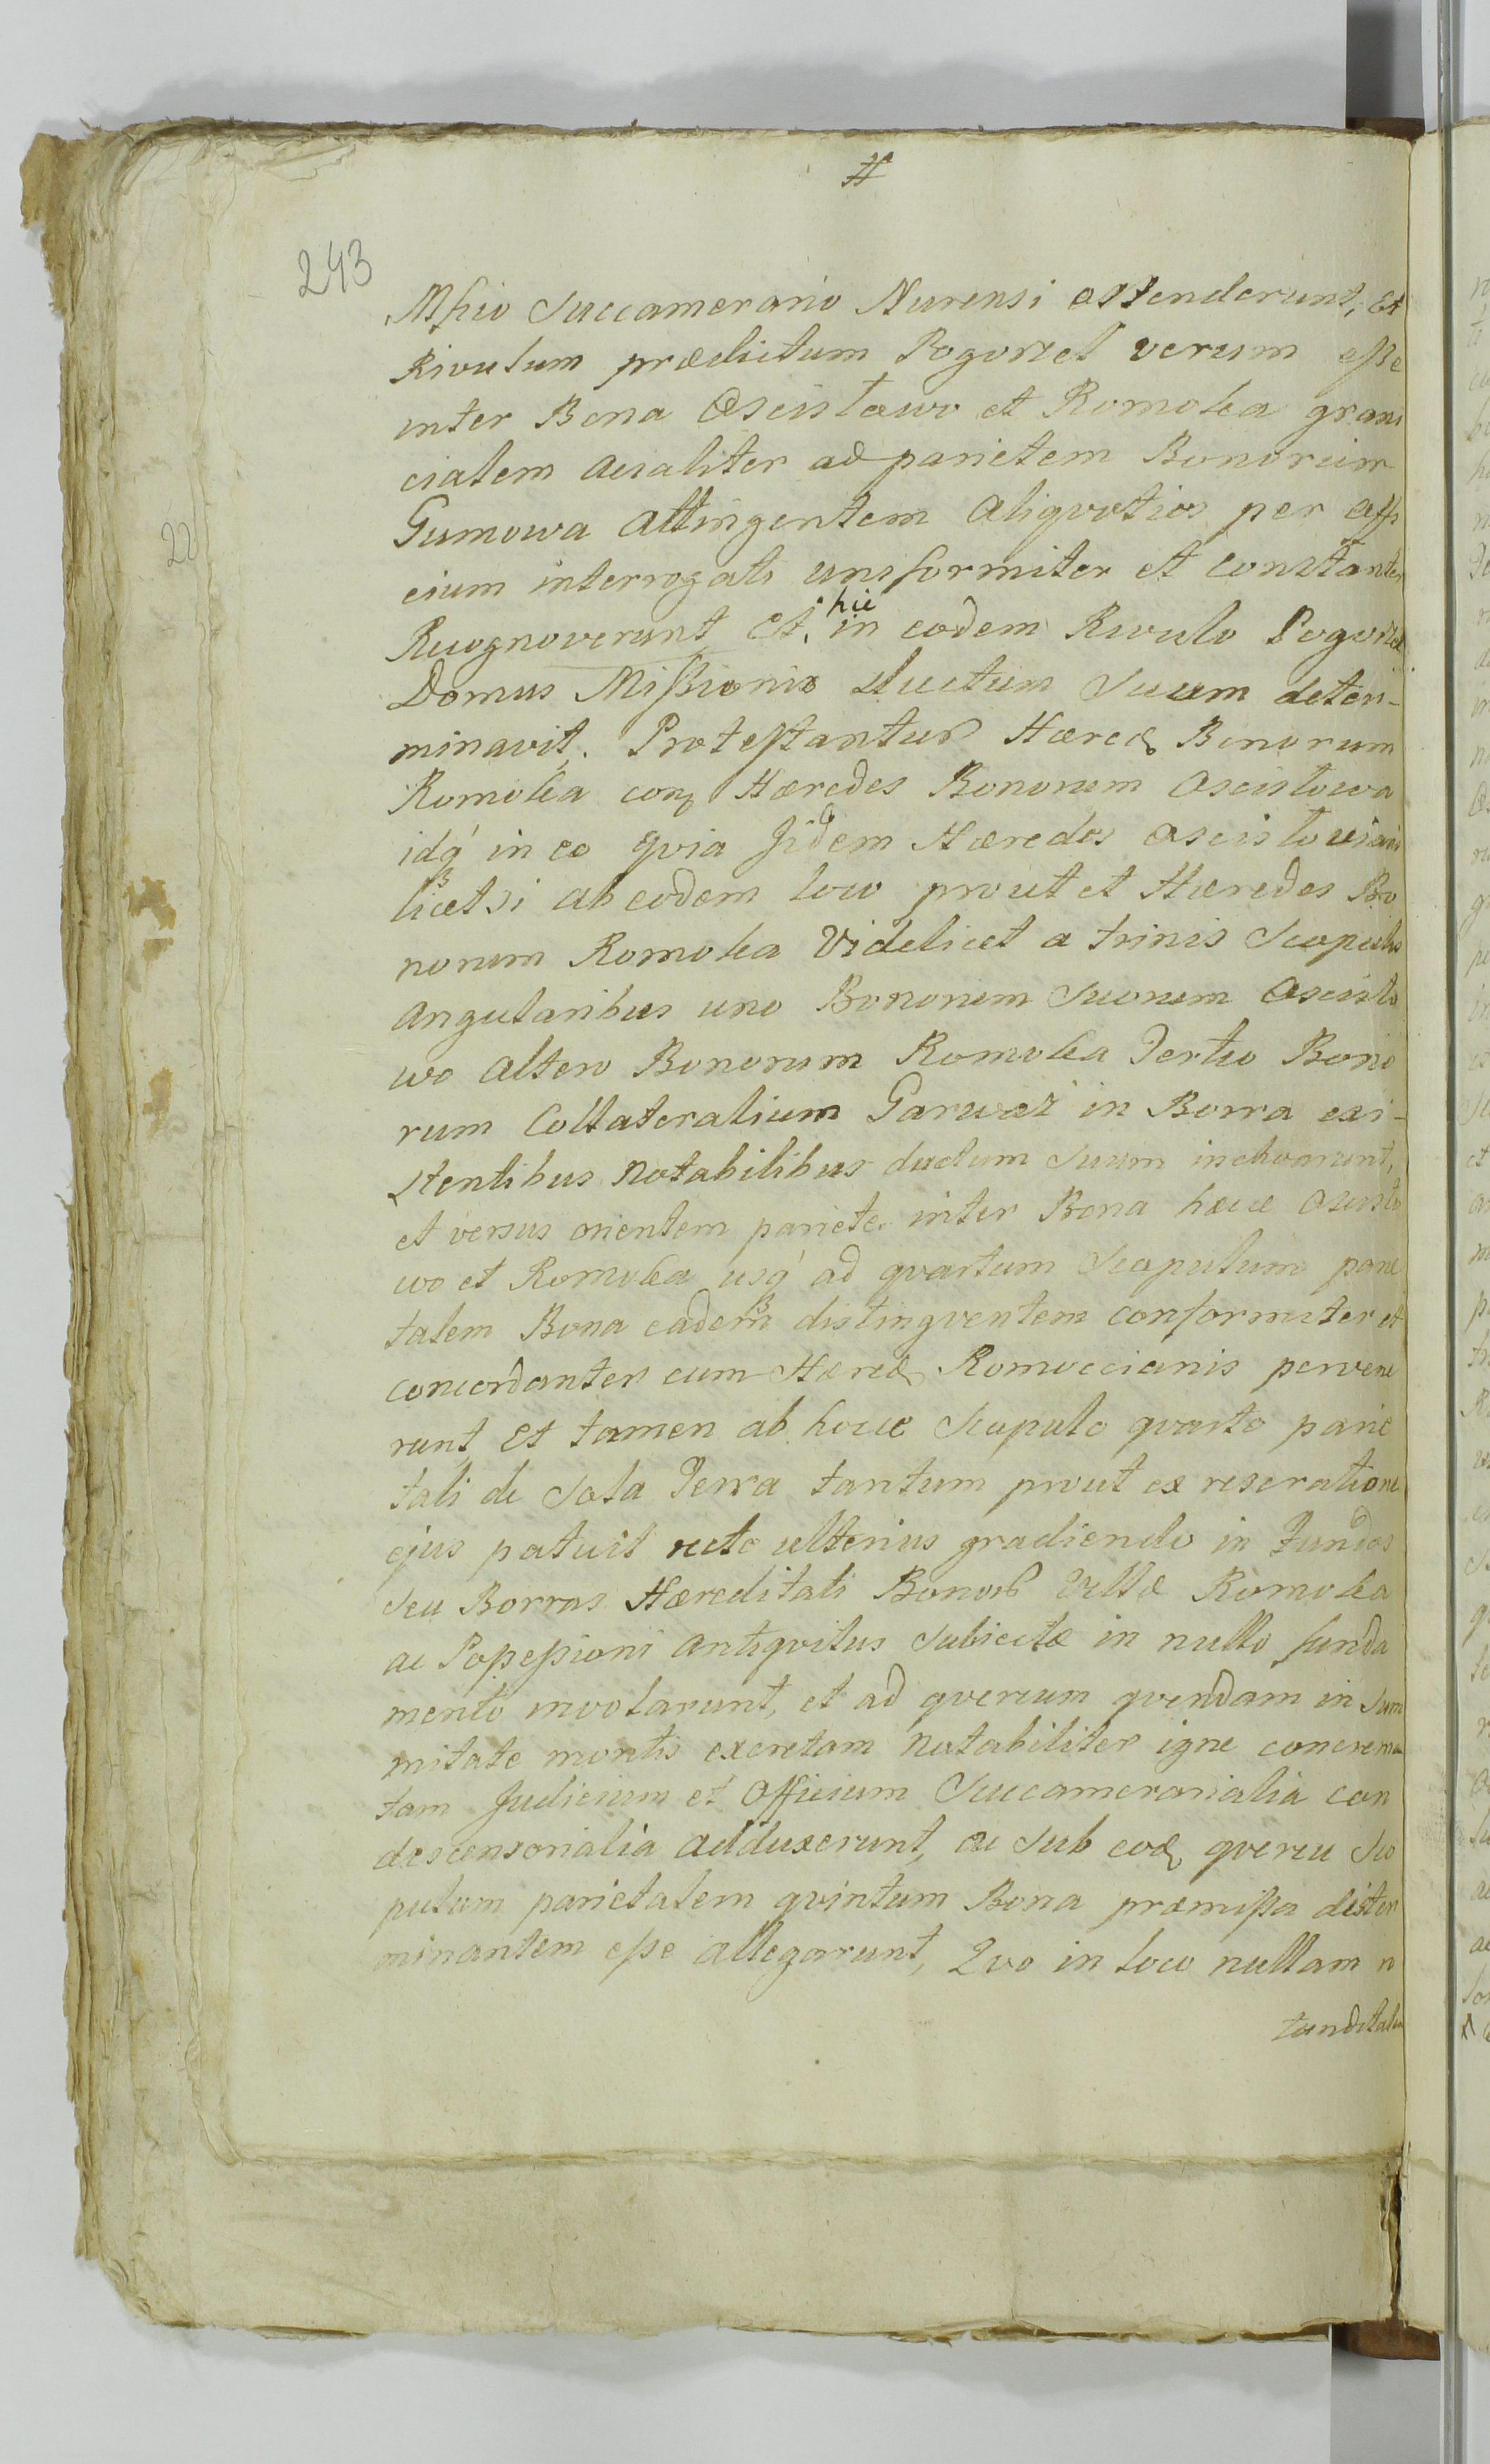 #
243
Mfico Succamerario Nurensi ostenderunt, Et
Rivulum prædictum Pogorzel verum esse
inter Bona Oscisłowo et Romoka grani
cialem acialiter ad parietem Bonorum
Gumowa attingentem aliqvoties per offi
cium interrogati uniformiter et constanter
Recognoverunt, Et hic in eodem Rivulo Pogorzel
22
Domus Missionis ductum Suum deter-
minavit. Protestantur Hæred Bonorum
Romoka con Hæredes Bonorum Oscisłowa
idq́ in eo qvia Jidem Hæredes Oscisłoviani
licet si ab eodem loco prout et Hæredes Bo
norum Romoka Videlicet a trinis Scopulis
angularibus uno Bonorum Suorum Oscisło
wo altero Bonorum Romoka Tertio Bono
rum Collateralium Garwarz in Borra exi-
stentibus notabilibus ductum Suum inchoarunt,
et versus orientem pariete inter Bona hæcce Oscisło
wo et Romoka usq́ ad qvartum Scopulum parie
talem Bona eadem distingventem conformiter et
concordanter cum Hæred Romoccianis pervene
runt, Et tamen ab hocce Scopulo qvarto parie
tali de Sola Terra tantum prout ex reseratione
ejus patuit recte ulterius gradiendo in Fundos
Seu Borras Hæreditati Bonor Villæ Romoka
ac Possessioni antiqvitus Subiectæ in nullo funda
mento involarunt, et ad qvercum qvendam in Sum
mitate montis excretam notabiliter igne concrema
tam Judicium et Officium Succamerarialia con
descensorialia adduxerunt, ac Sub eod qvercu Sco
pulum parietalem qvintum Bona præmissa dister
minantem esse allegarunt, Qvo in loco nullam n
tanditalem